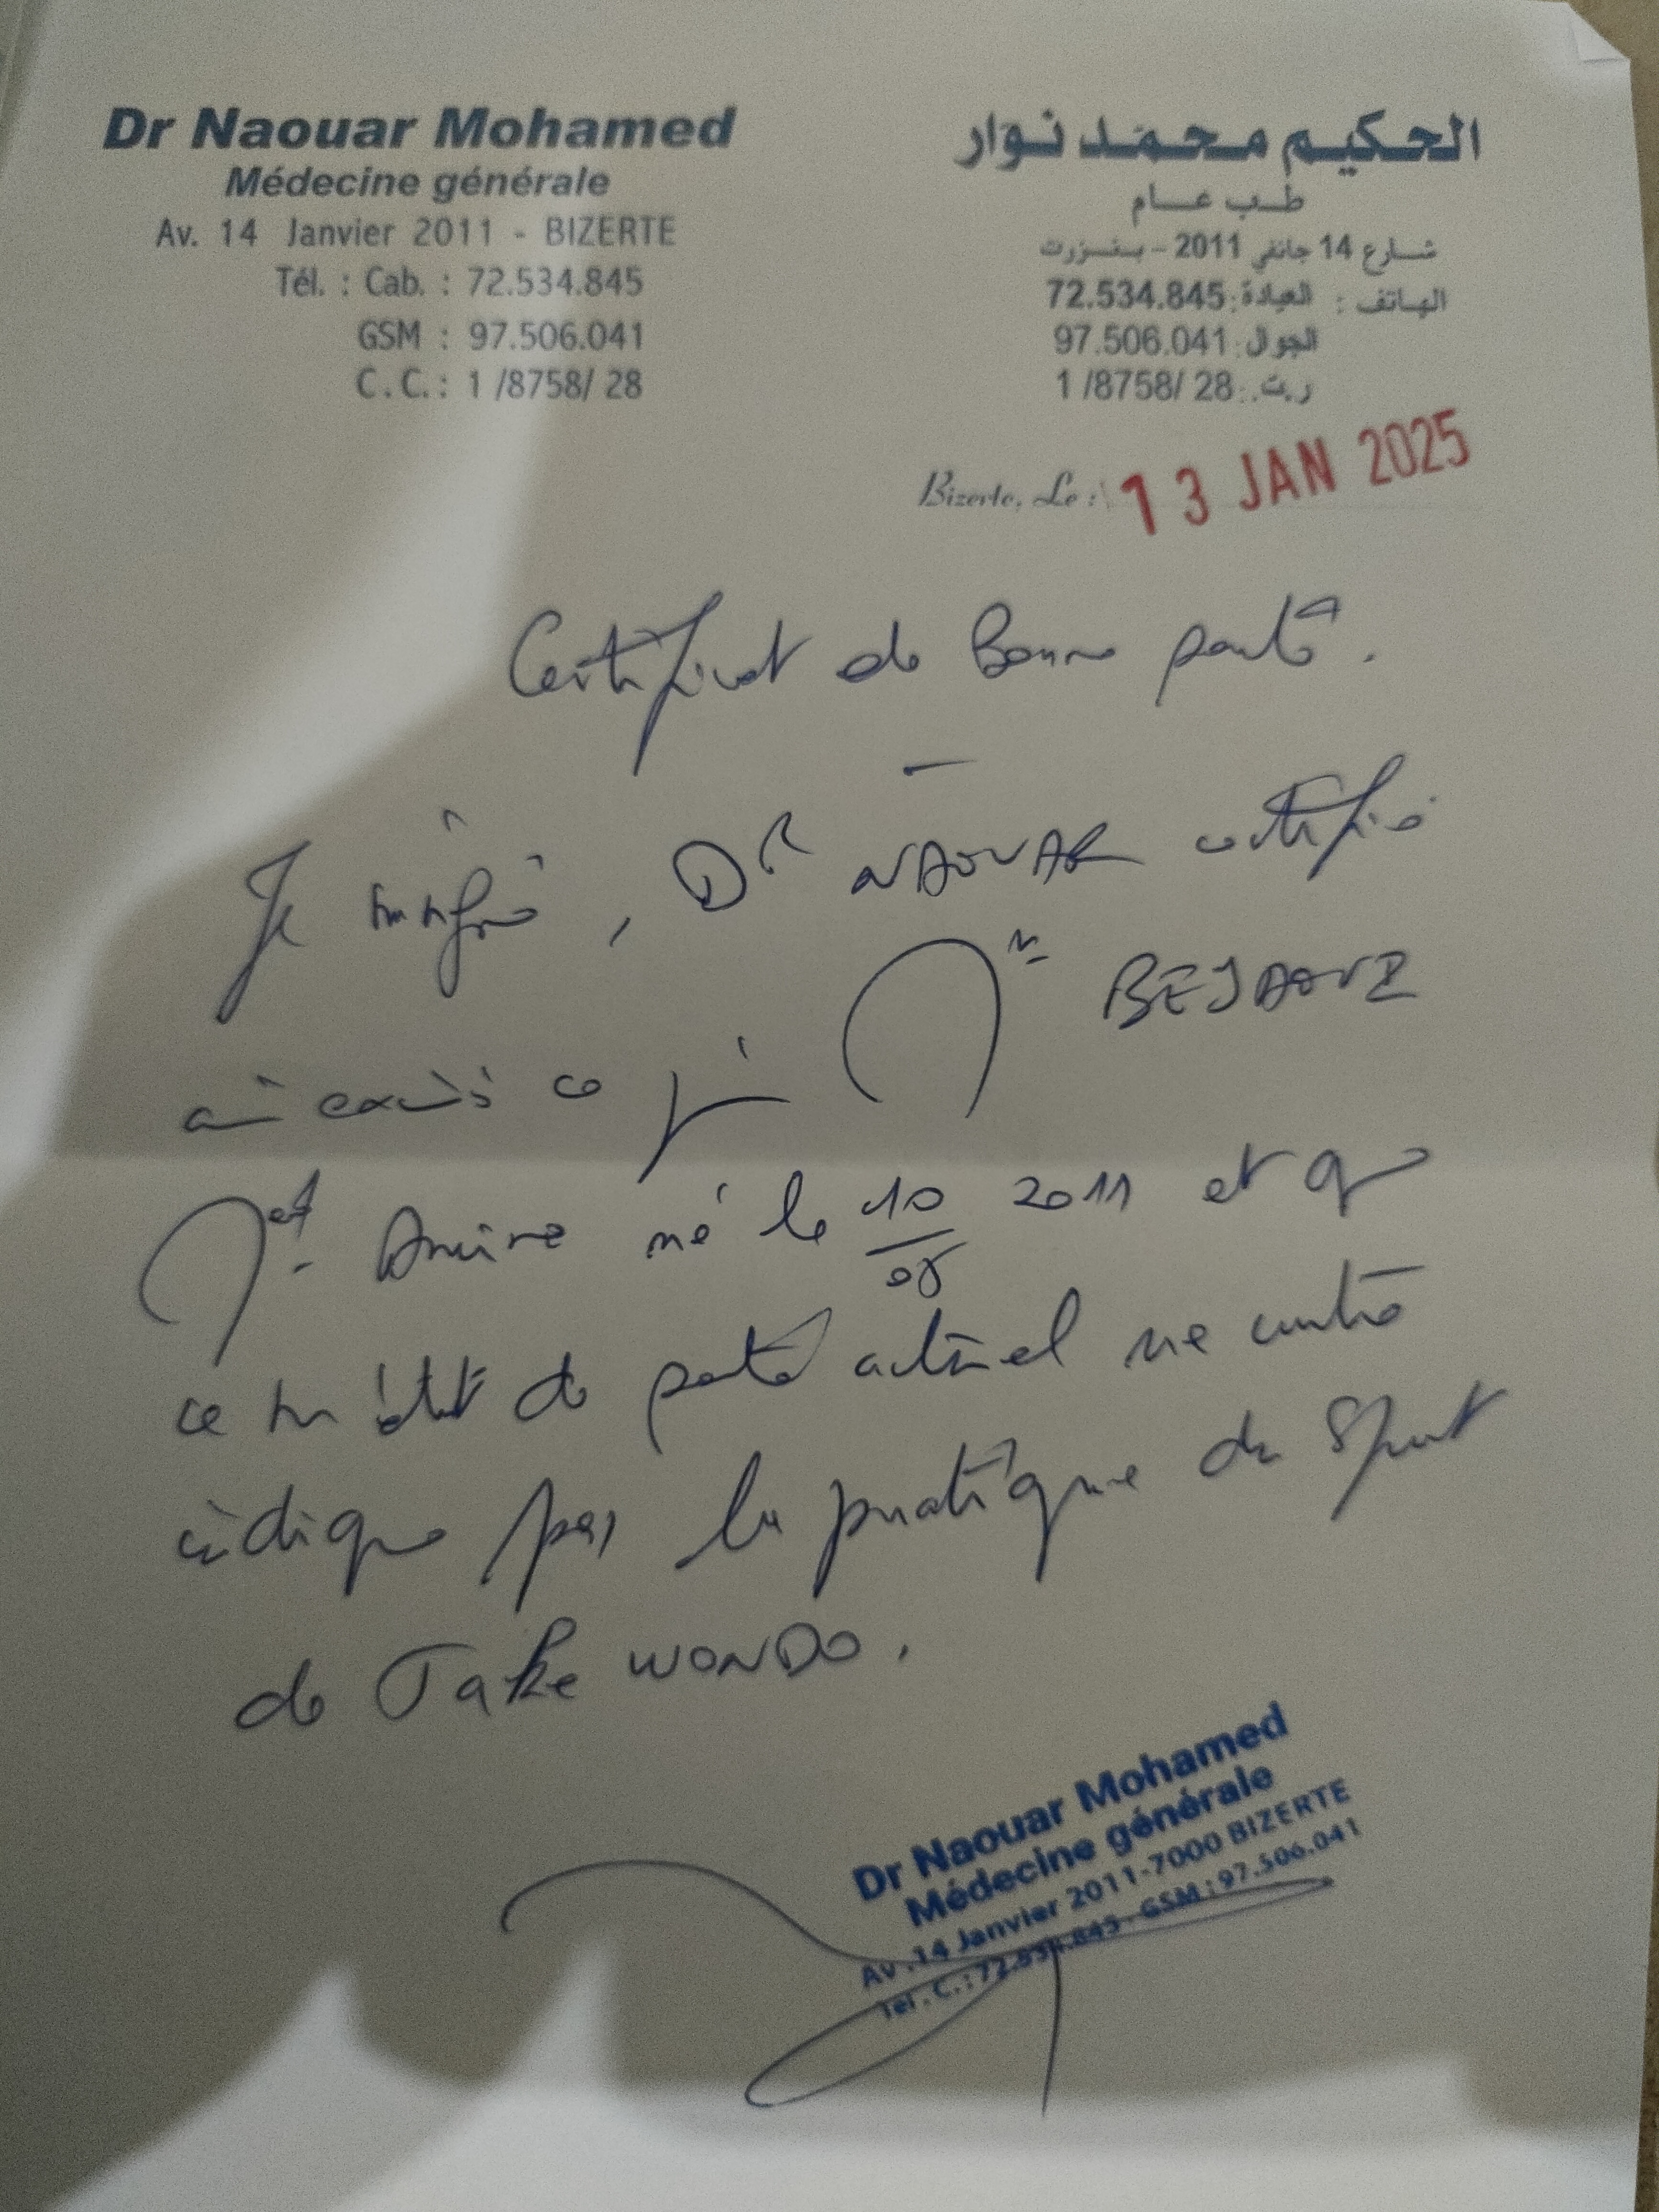 Dr Naouar Mohamed
Médecine générale
Av. 14 Janvier 2011 - BIZERTE
Tél. : Cab. : 72.534.845
GSM : 97.506.041
C.C. : 1 /8758/ 28
الحكيم محمد نوار
طب عام
شارع 14 جانفي 2011 - بنزرت
الهاتف : العيادة: 72.534.845
الجوال: 97.506.041
ر.ت.: 1 /8758/ 28
Bizerte, Le : 13 JAN 2025
Certificat de Bonne santé.
Je soussigné, Dr NAOUAR certifie
avoir examiné ce jour Mr
né le 10/05 2011 et que
ce son état de santé actuel ne contre
indique pas la pratique du Sport
de Take WONDO.
Dr Naouar Mohamed
Médecine générale
Av. 14 Janvier 2011-7000 BIZERTE
Tel. C. : 72.534.845 - GSM : 97.506.041